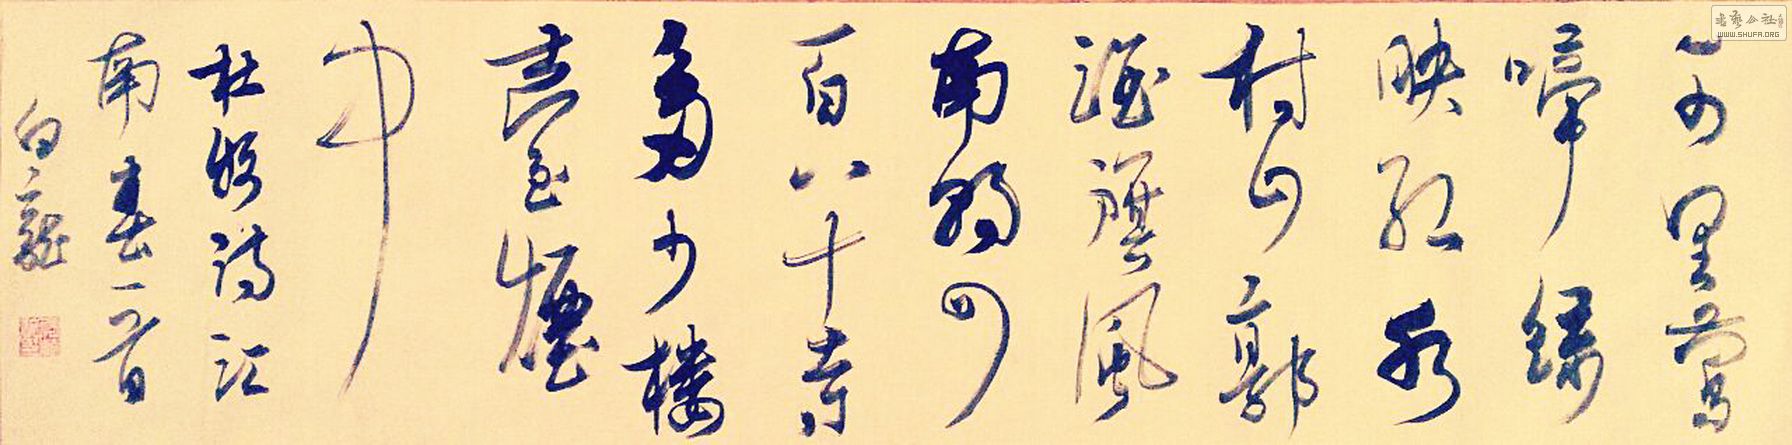 千里鶯
啼綠
映紅水
村山郭
酒旗風
南朝四
百八十寺
多少樓
臺煙
中
杜牧詩江
南春一首
白龍
书艺公社
WWW.SHUFA.ORG